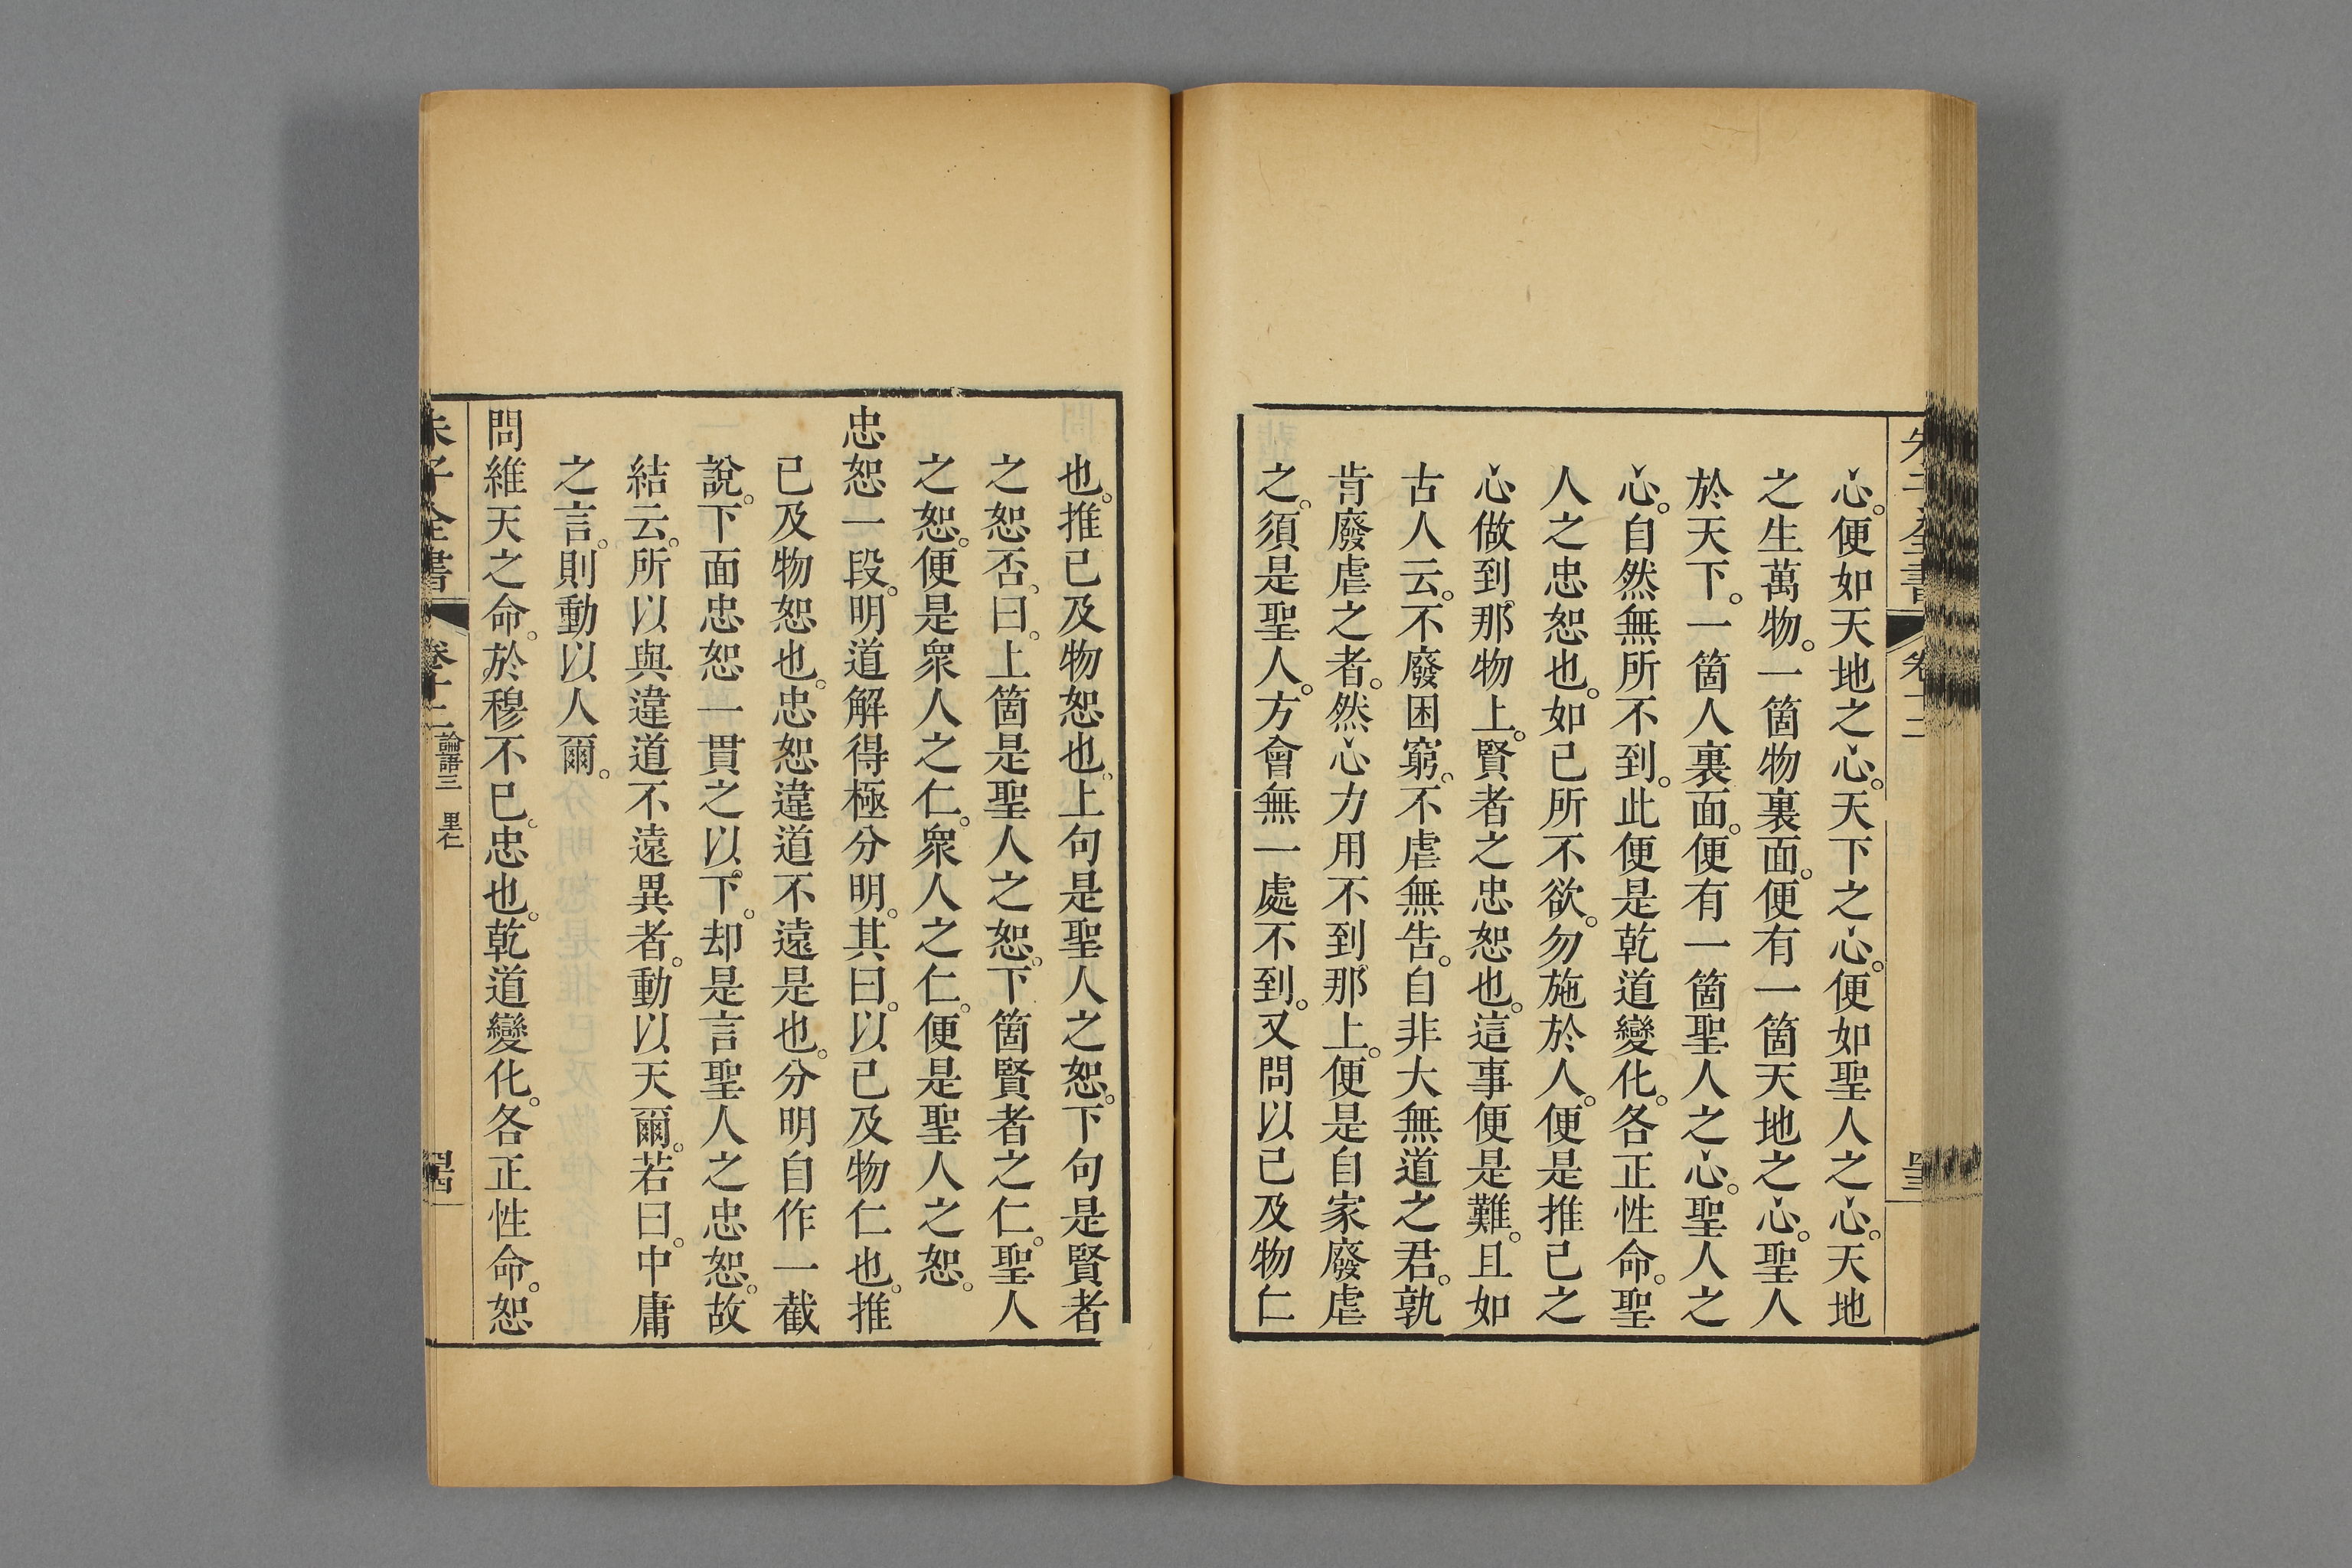 心。便如天地之心。天下之心。便如聖人之心。天地
之生萬物。一箇物裏面。便有一箇天地之心。聖人
於天下。一箇人裏面。便有一箇聖人之心。聖人之
心。自然無所不到。此便是乾道變化。各正性命。聖
人之忠恕也。如己所不欲。勿施於人。便是推己之
心做到那物上。賢者之忠恕也。這事便是難。且如
古人云。不廢困窮。不虐無告。自非大無道之君。孰
肯廢虐之者。然心力用不到那上。便是自家廢虐
之。須是聖人。方會無一處不到。又問以己及物仁
也。推己及物恕也。上句是聖人之恕。下句是賢者
之恕否。曰。上箇是聖人之恕。下箇賢者之仁。聖人
之恕。便是衆人之仁。衆人之仁。便是聖人之恕。
忠恕一段。明道解得極分明。其曰。以己及物仁也。推
己及物恕也。忠恕違道不遠是也。分明自作一截
說。下面忠恕一貫之以下。却是言聖人之忠恕。故
結云。所以與違道不遠異者。動以天爾。若曰。中庸
之言。則動以人爾。
問維天之命。於穆不已。忠也。乾道變化。各正性命。恕
朱子全書 卷十二 論語三 里仁